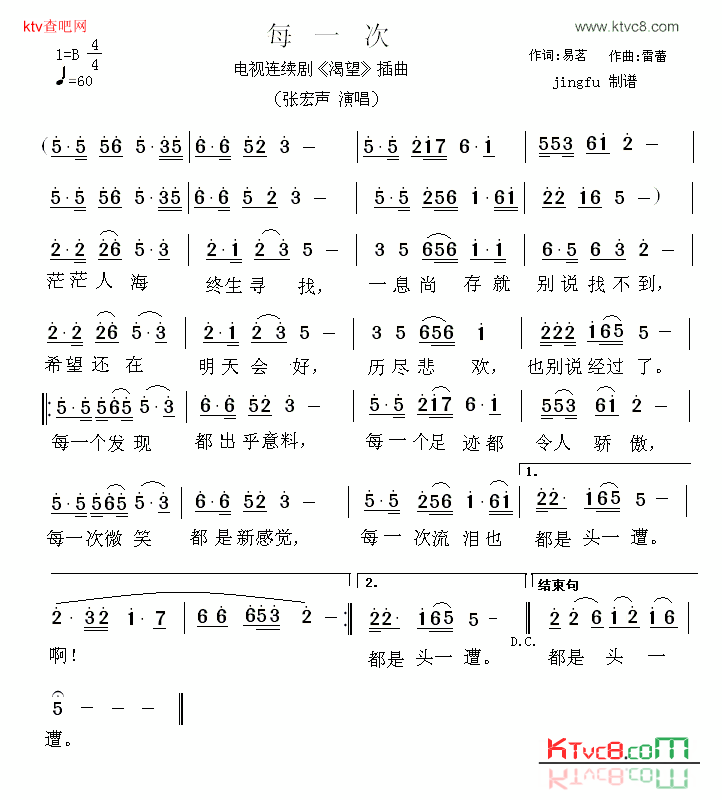 ktv查吧网
www.ktvc8.com
每一次
1=B 4/4
♩=60
电视连续剧《渴望》插曲
(张宏声 演唱)
作词:易茗 作曲:雷蕾
jingfu 制谱
(5·5 56 5·35 | 6·6 52 3 - | 5·5 217 6·1 | 553 61 2 - |
5·5 56 5·35 | 6·6 52 3 - | 5·5 256 1·61 | 22 16 5 -) |
2·2 26 5·3 | 2·1 23 5 - | 3 5 656 1·1 | 6·5 63 2 - |
茫茫人海 终生寻 找, 一息尚 存就 别说找不到,
2·2 26 5·3 | 2·1 2 3 5 - | 3 5 656 1 | 222 165 5 - |
希望还在 明天会 好, 历尽悲 欢, 也别说经过了。
‖: 5·5 5565 5·3 | 6·6 52 3 - | 5·5 217 6·1 | 553 61 2 - |
每一个发现 都出乎意料, 每一个足 迹都 令人 骄傲,
1.
5·5 5565 5·3 | 6·6 52 3 - | 5·5 256 1·61 | 22· 165 5 - |
每一次微笑 都是新感觉, 每一次流 泪也 都是头一遭。
2. 结束句
2·32 1·7 | 6 6 653 2 - :‖ 22· 165 5 - | 2 2 6 1 2 1 6 |
D.C.
啊! 都是 头一 遭。 都是 头 一
5 - - - ‖
遭。
KTvc8.com